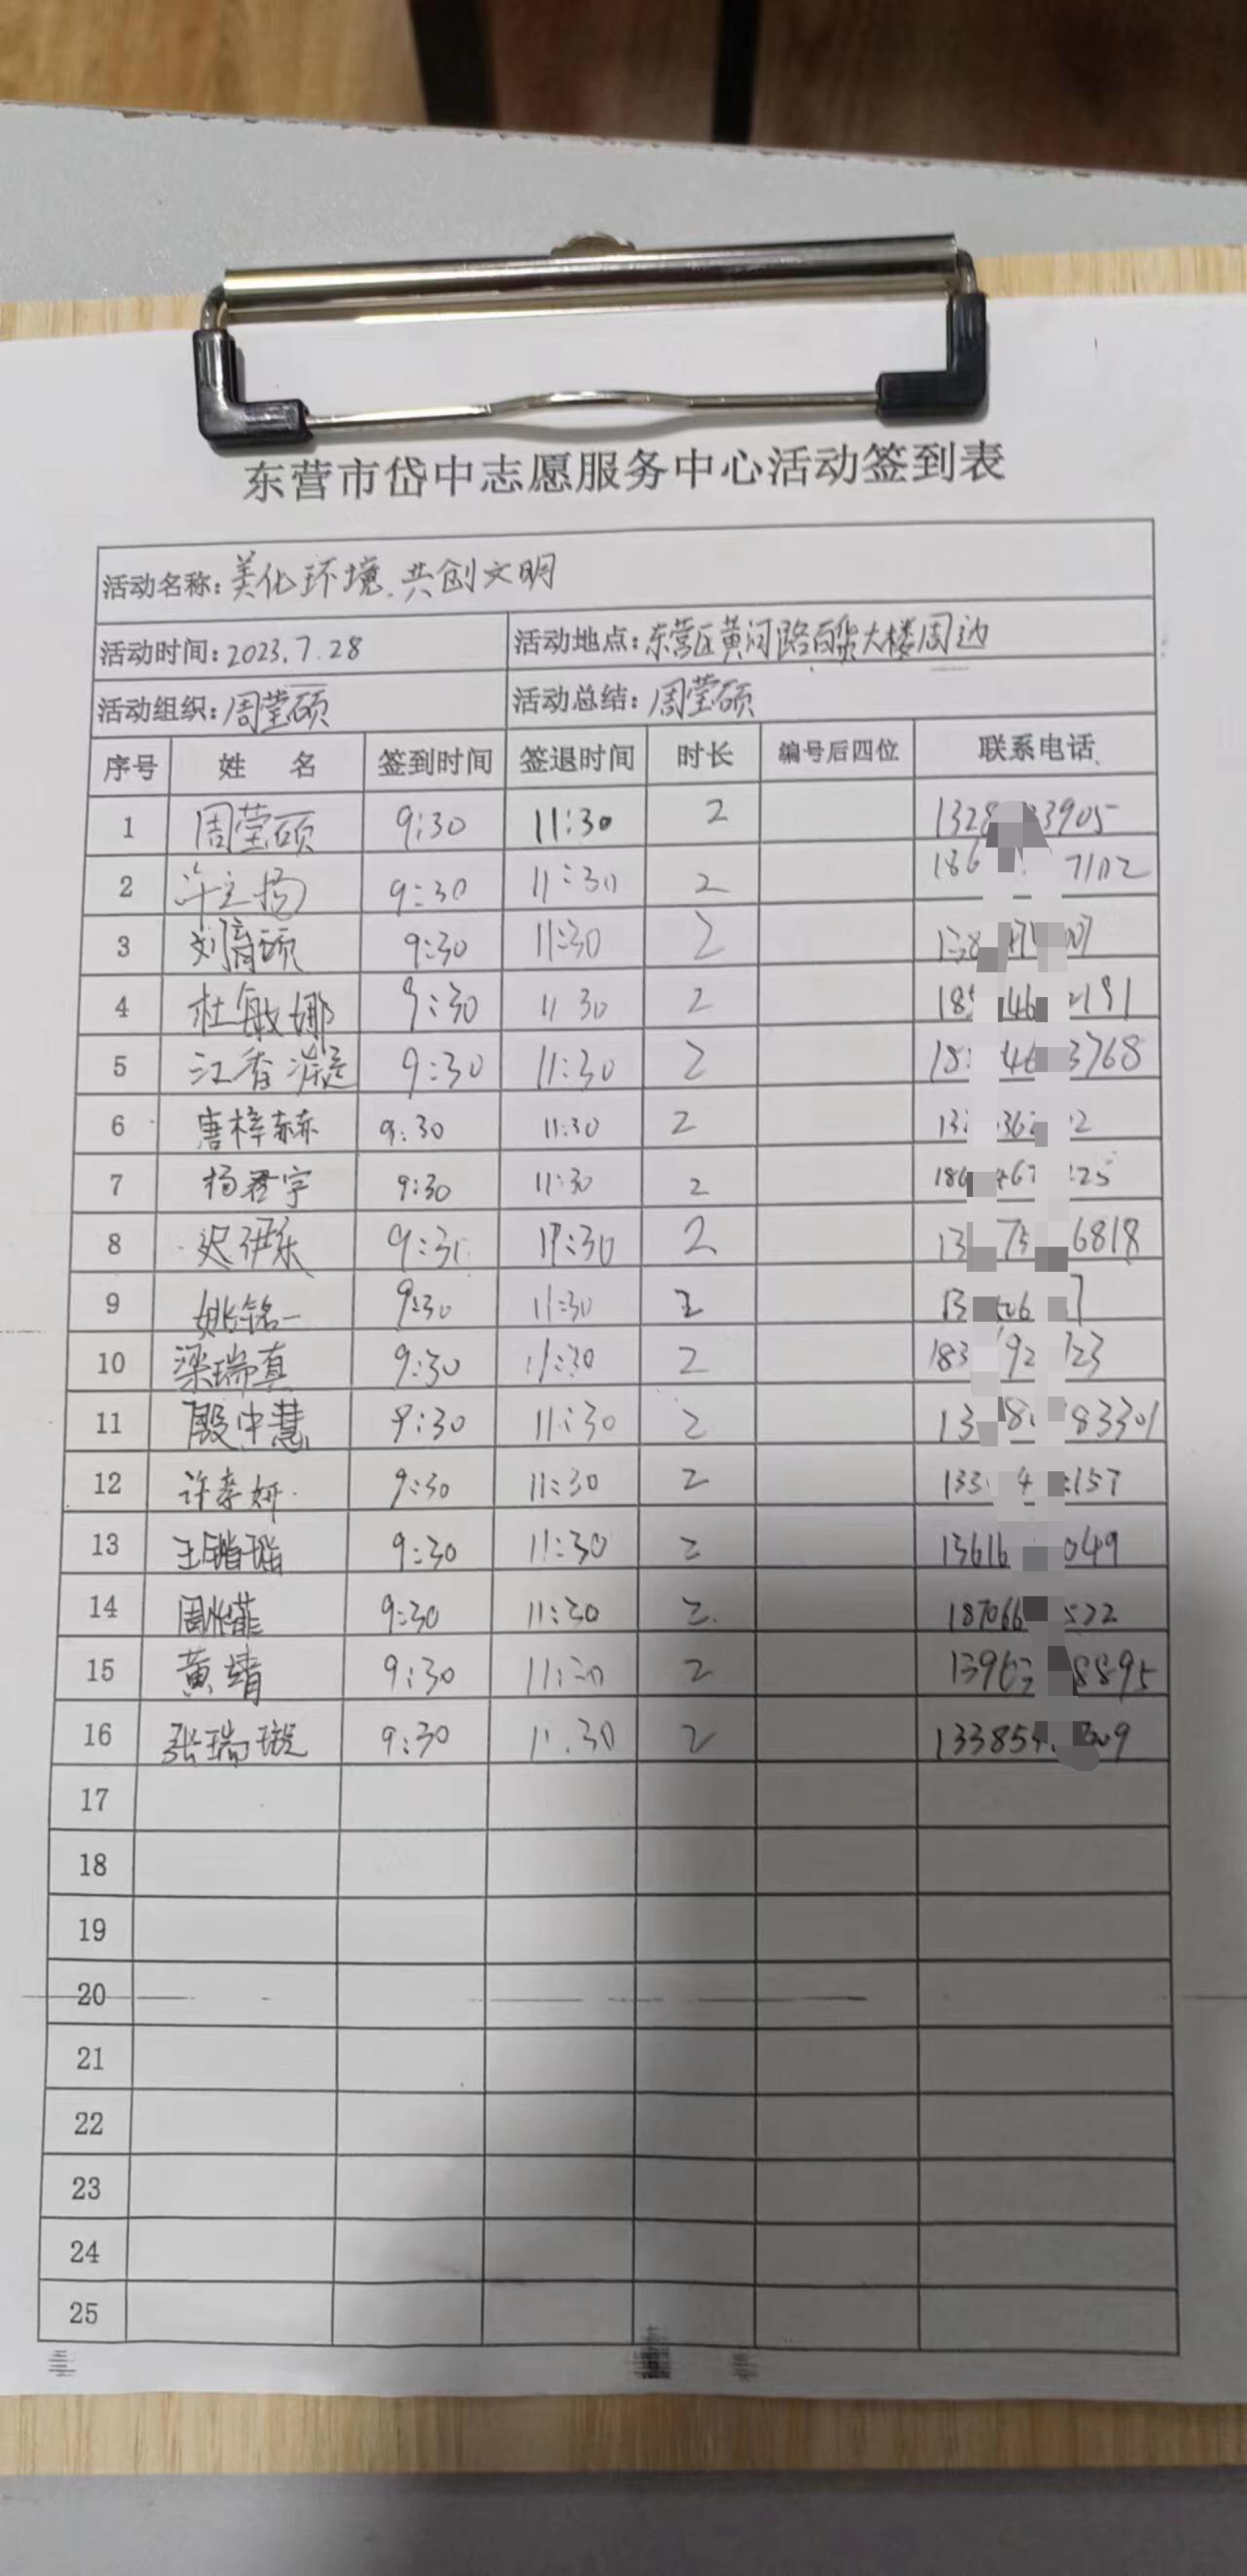 东营市岱中志愿服务中心活动签到表
活动名称：美化环境.共创文明
活动时间：2023.7.28 活动地点：东营区黄河路百货大楼周边
活动组织：周莹硕 活动总结：周莹硕
序号 姓 名 签到时间 签退时间 时长 编号后四位 联系电话
1 周莹硕 9:30 11:30 2 1328 3905
2 9:30 11:30 2 186 7102
3 刘育硕 9:30 11:30 2
4 杜敏娜 9:30 11 30 2 146 191
5 江香凝 9:30 11:30 2 18 46 3768
6 唐梓赫 9:30 11:30 2 13 36 2
7 杨君宇 9:30 11:30 2 186 67 25
8 9:30 11:30 2 13 75 6818
9 姚铭一 9:30 11:30 2 13
10 梁瑞真 9:30 11:30 2 183 92 23
11 殷中慧 9:30 11:30 2 13 8 83301
12 9:30 11:30 2 133 4 157
13 9:30 11:30 2 13616 049
14 9:30 11:30 2 187066 522
15 黄靖 9:30 11:30 2 1396 8895
16 张瑞璇 9:30 11.30 2 13385 09
17
18
19
20
21
22
23
24
25